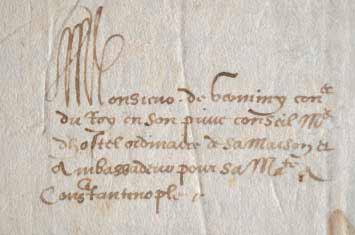 Monsieur de Germiny con^er
du Roy en son prive conseil M^e
dhostel ordinaire de sa maison et
Ambassadeur pour sa Ma^te a
Constantinople